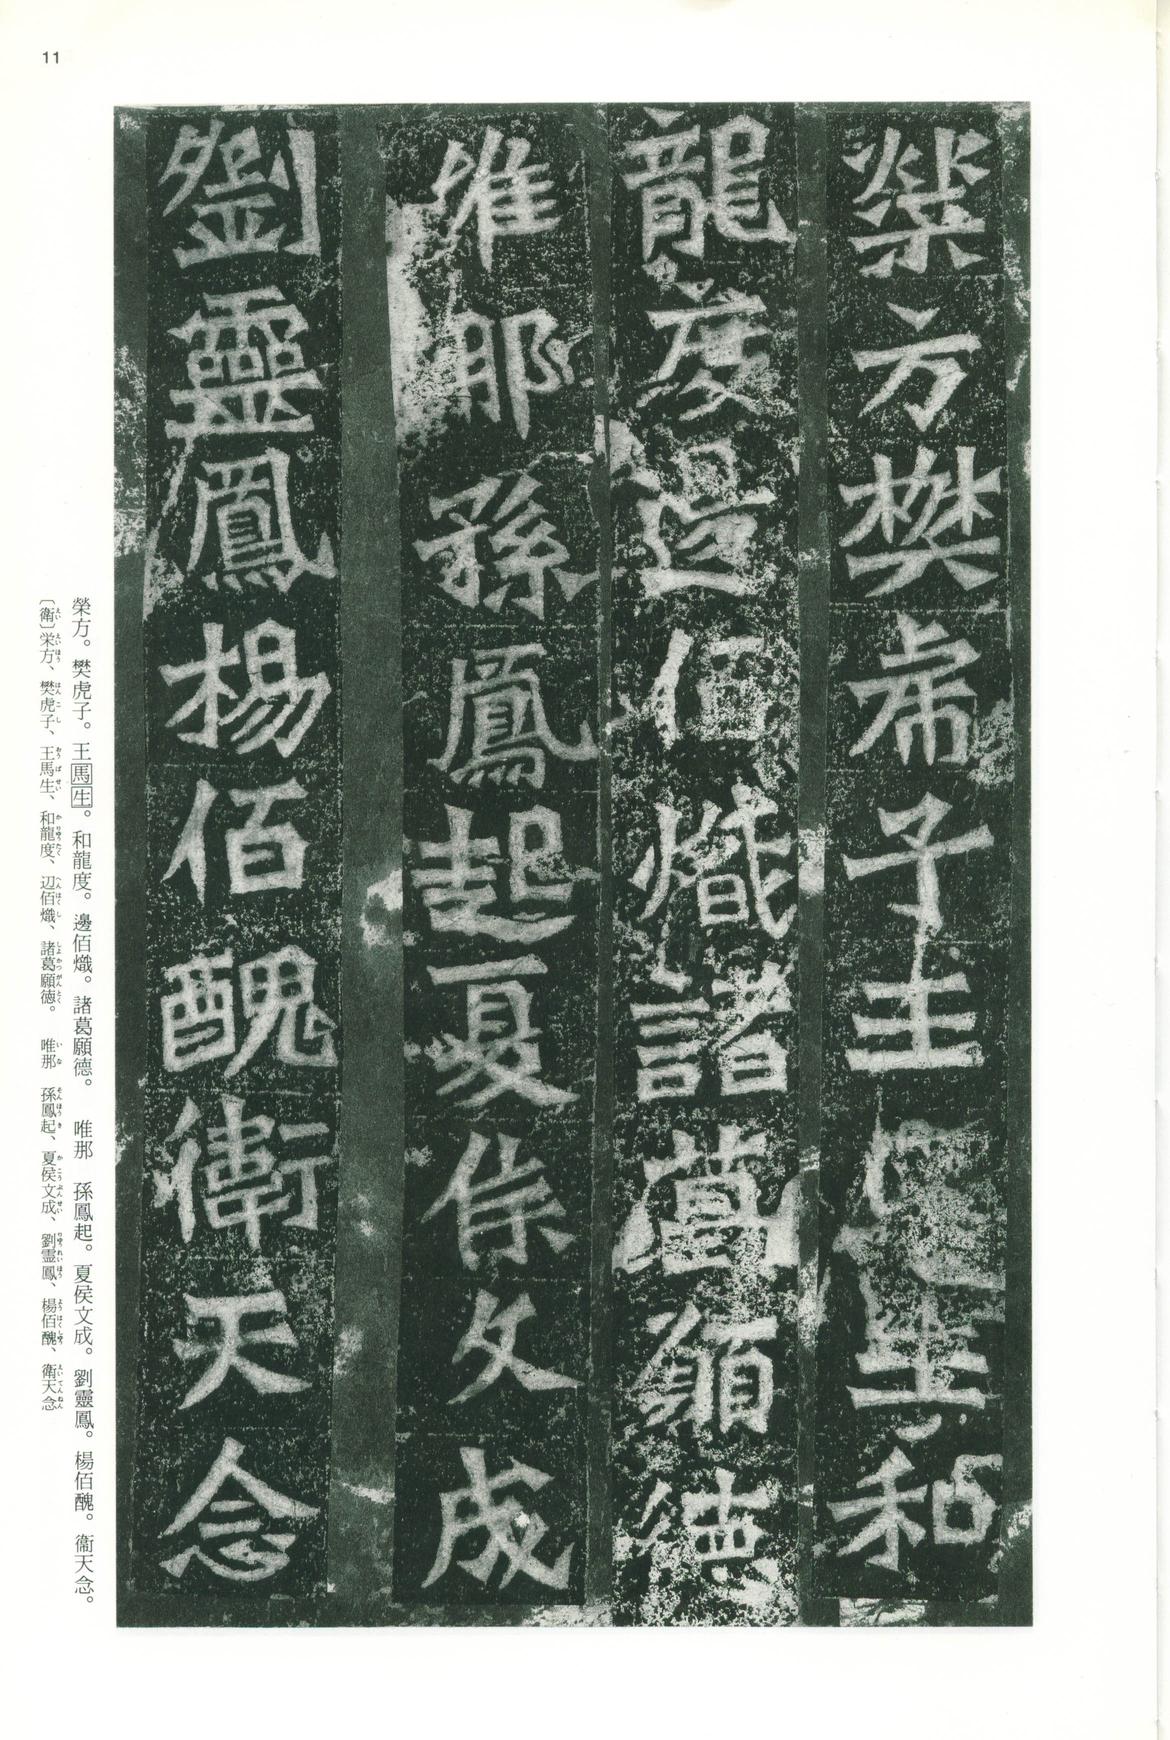 11
榮方樊虎子王馬生和
龍度邊佰熾諸葛願德
唯那孫鳳起夏侯文成
劉靈鳳楊佰醜衞天念
榮方。樊虎子。王馬生。和龍度。邊佰熾。諸葛願德。　唯那　孫鳳起。夏侯文成。劉靈鳳。楊佰醜。衞天念。
〔衛〕栄方、樊虎子、王馬生、和龍度、辺佰熾、諸葛願徳。　唯那　孫鳳起、夏侯文成、劉霊鳳、楊佰醜、衛天念